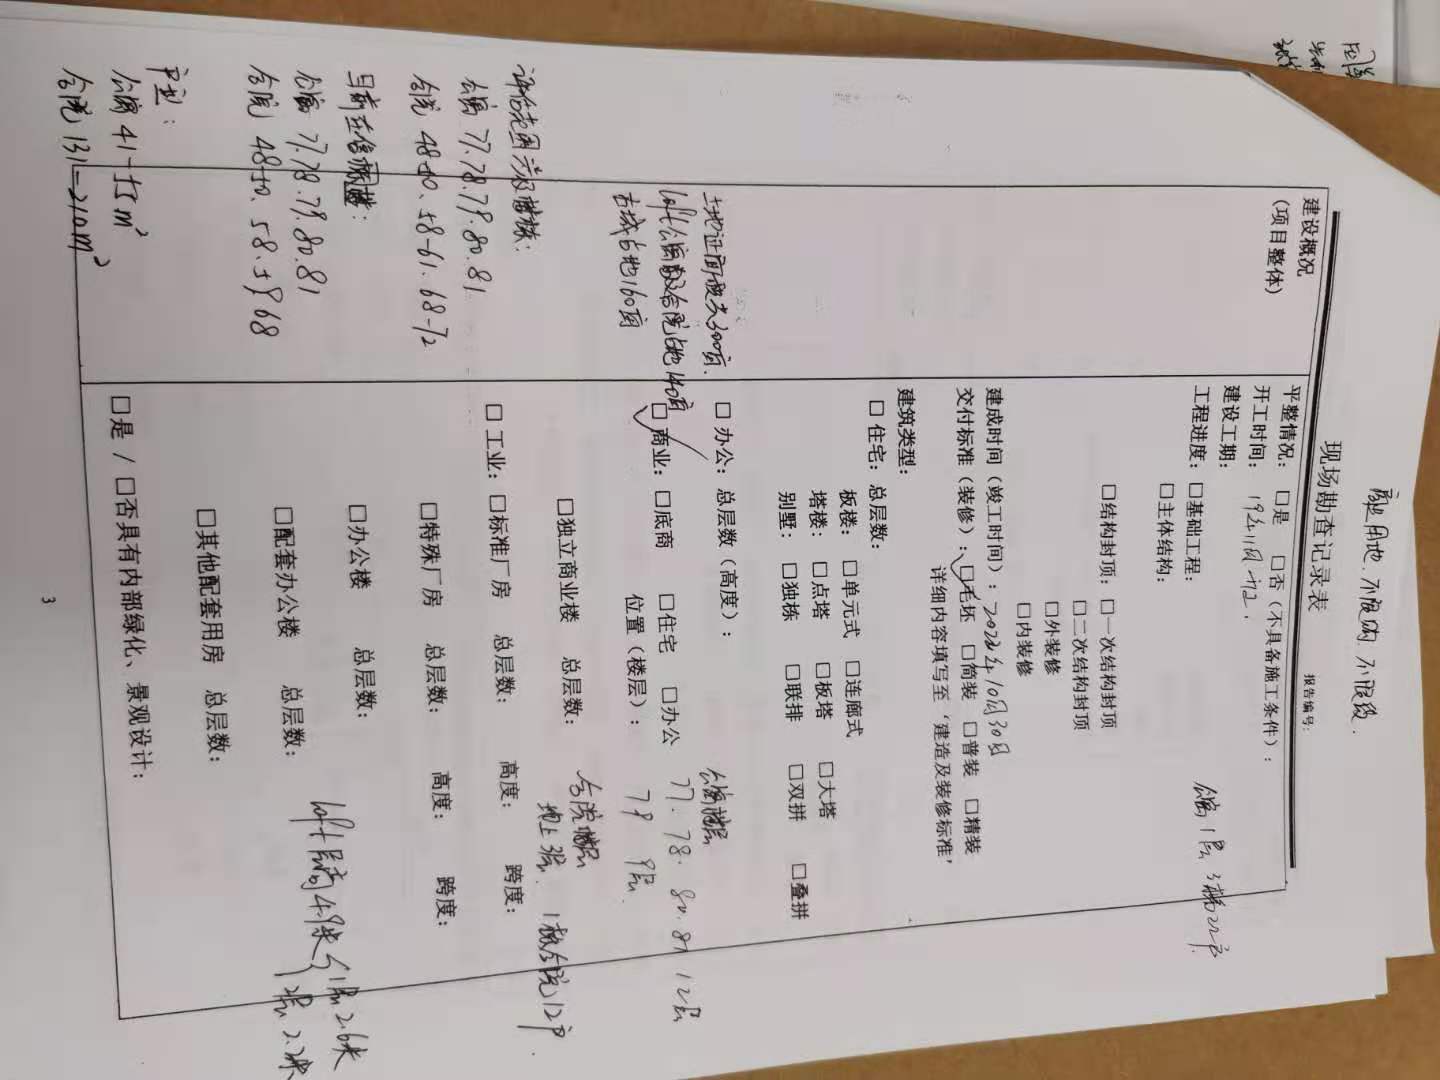 商业用地.不限购.不限贷.
现场勘查记录表
报告编号:
建设概况
(项目整体)
平整情况: □是 □否(不具备施工条件):
开工时间: 19年11月
建设工期:
工程进度: □基础工程:
□主体结构:
公寓1层3梯22户
□结构封顶: □一次结构封顶
□二次结构封顶
□外装修
□内装修
建成时间(竣工时间): 2022年10月30日
交付标准(装修): □毛坯 □简装 □普装 □精装
详细内容填写至'建造及装修标准'
建筑类型:
□住宅: 总层数:
板楼: □单元式 □连廊式
塔楼: □点塔 □板塔 □大塔
别墅: □独栋 □联排 □双拼 □叠拼
□办公: 总层数(高度):
□商业: □底商 □住宅 □办公
位置(楼层):
公寓楼层
77.78.80.81 12层
79 9层
□独立商业楼 总层数:
合院楼层
地上3层. 1栋合院12户.
□工业: □标准厂房 总层数: 高度: 跨度:
□特殊厂房 总层数: 高度: 跨度:
□办公楼 总层数:
□配套办公楼 总层数:
□其他配套用房 总层数:
loft层高4.9米 1层2.6米
2层2.2米
□是/□否具有内部绿化、景观设计:
土地证面积共300亩.
loft公寓及合院占地140亩
古城占地160亩
评估范围涉及楼栋:
公寓 77.78.79.80.81
合院 48-50、58-61.68-72
目前在售楼栋:
公寓 77.78.79.80.81
合院 48-50、58.59.68
户型:
公寓 41-55m²
合院 131-210m²
3